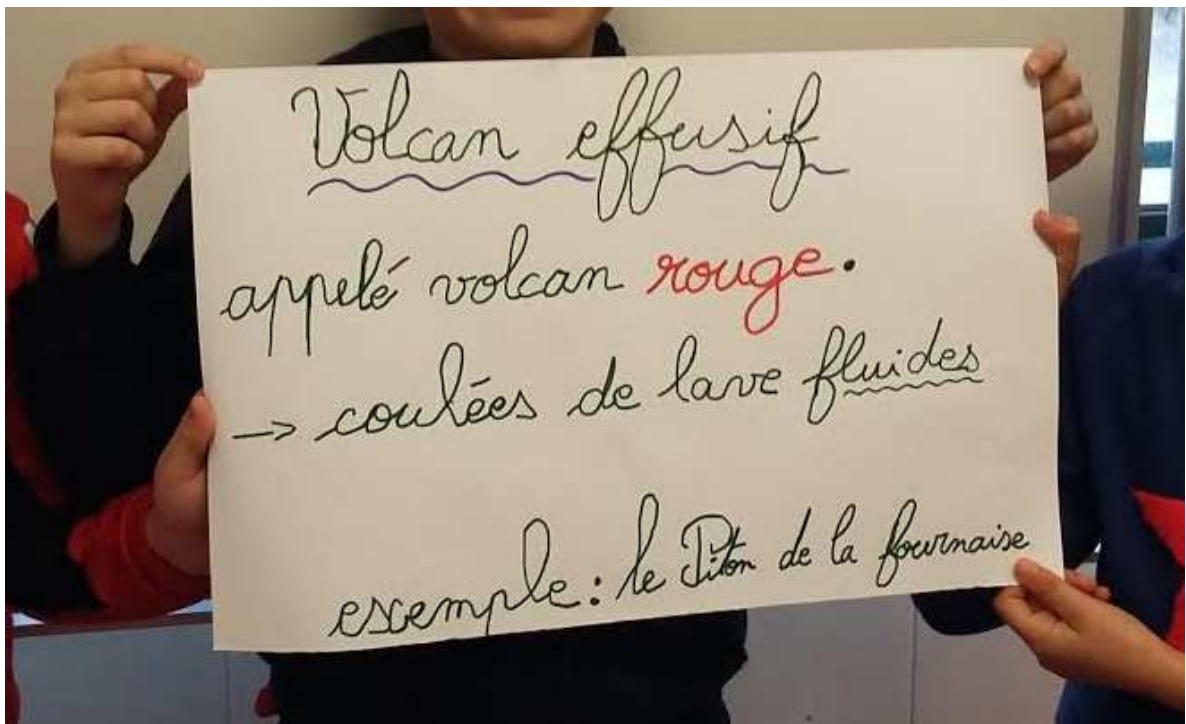 Volcan effusif
appelé volcan rouge.
→ coulées de lave fluides
exemple : le Piton de la fournaise